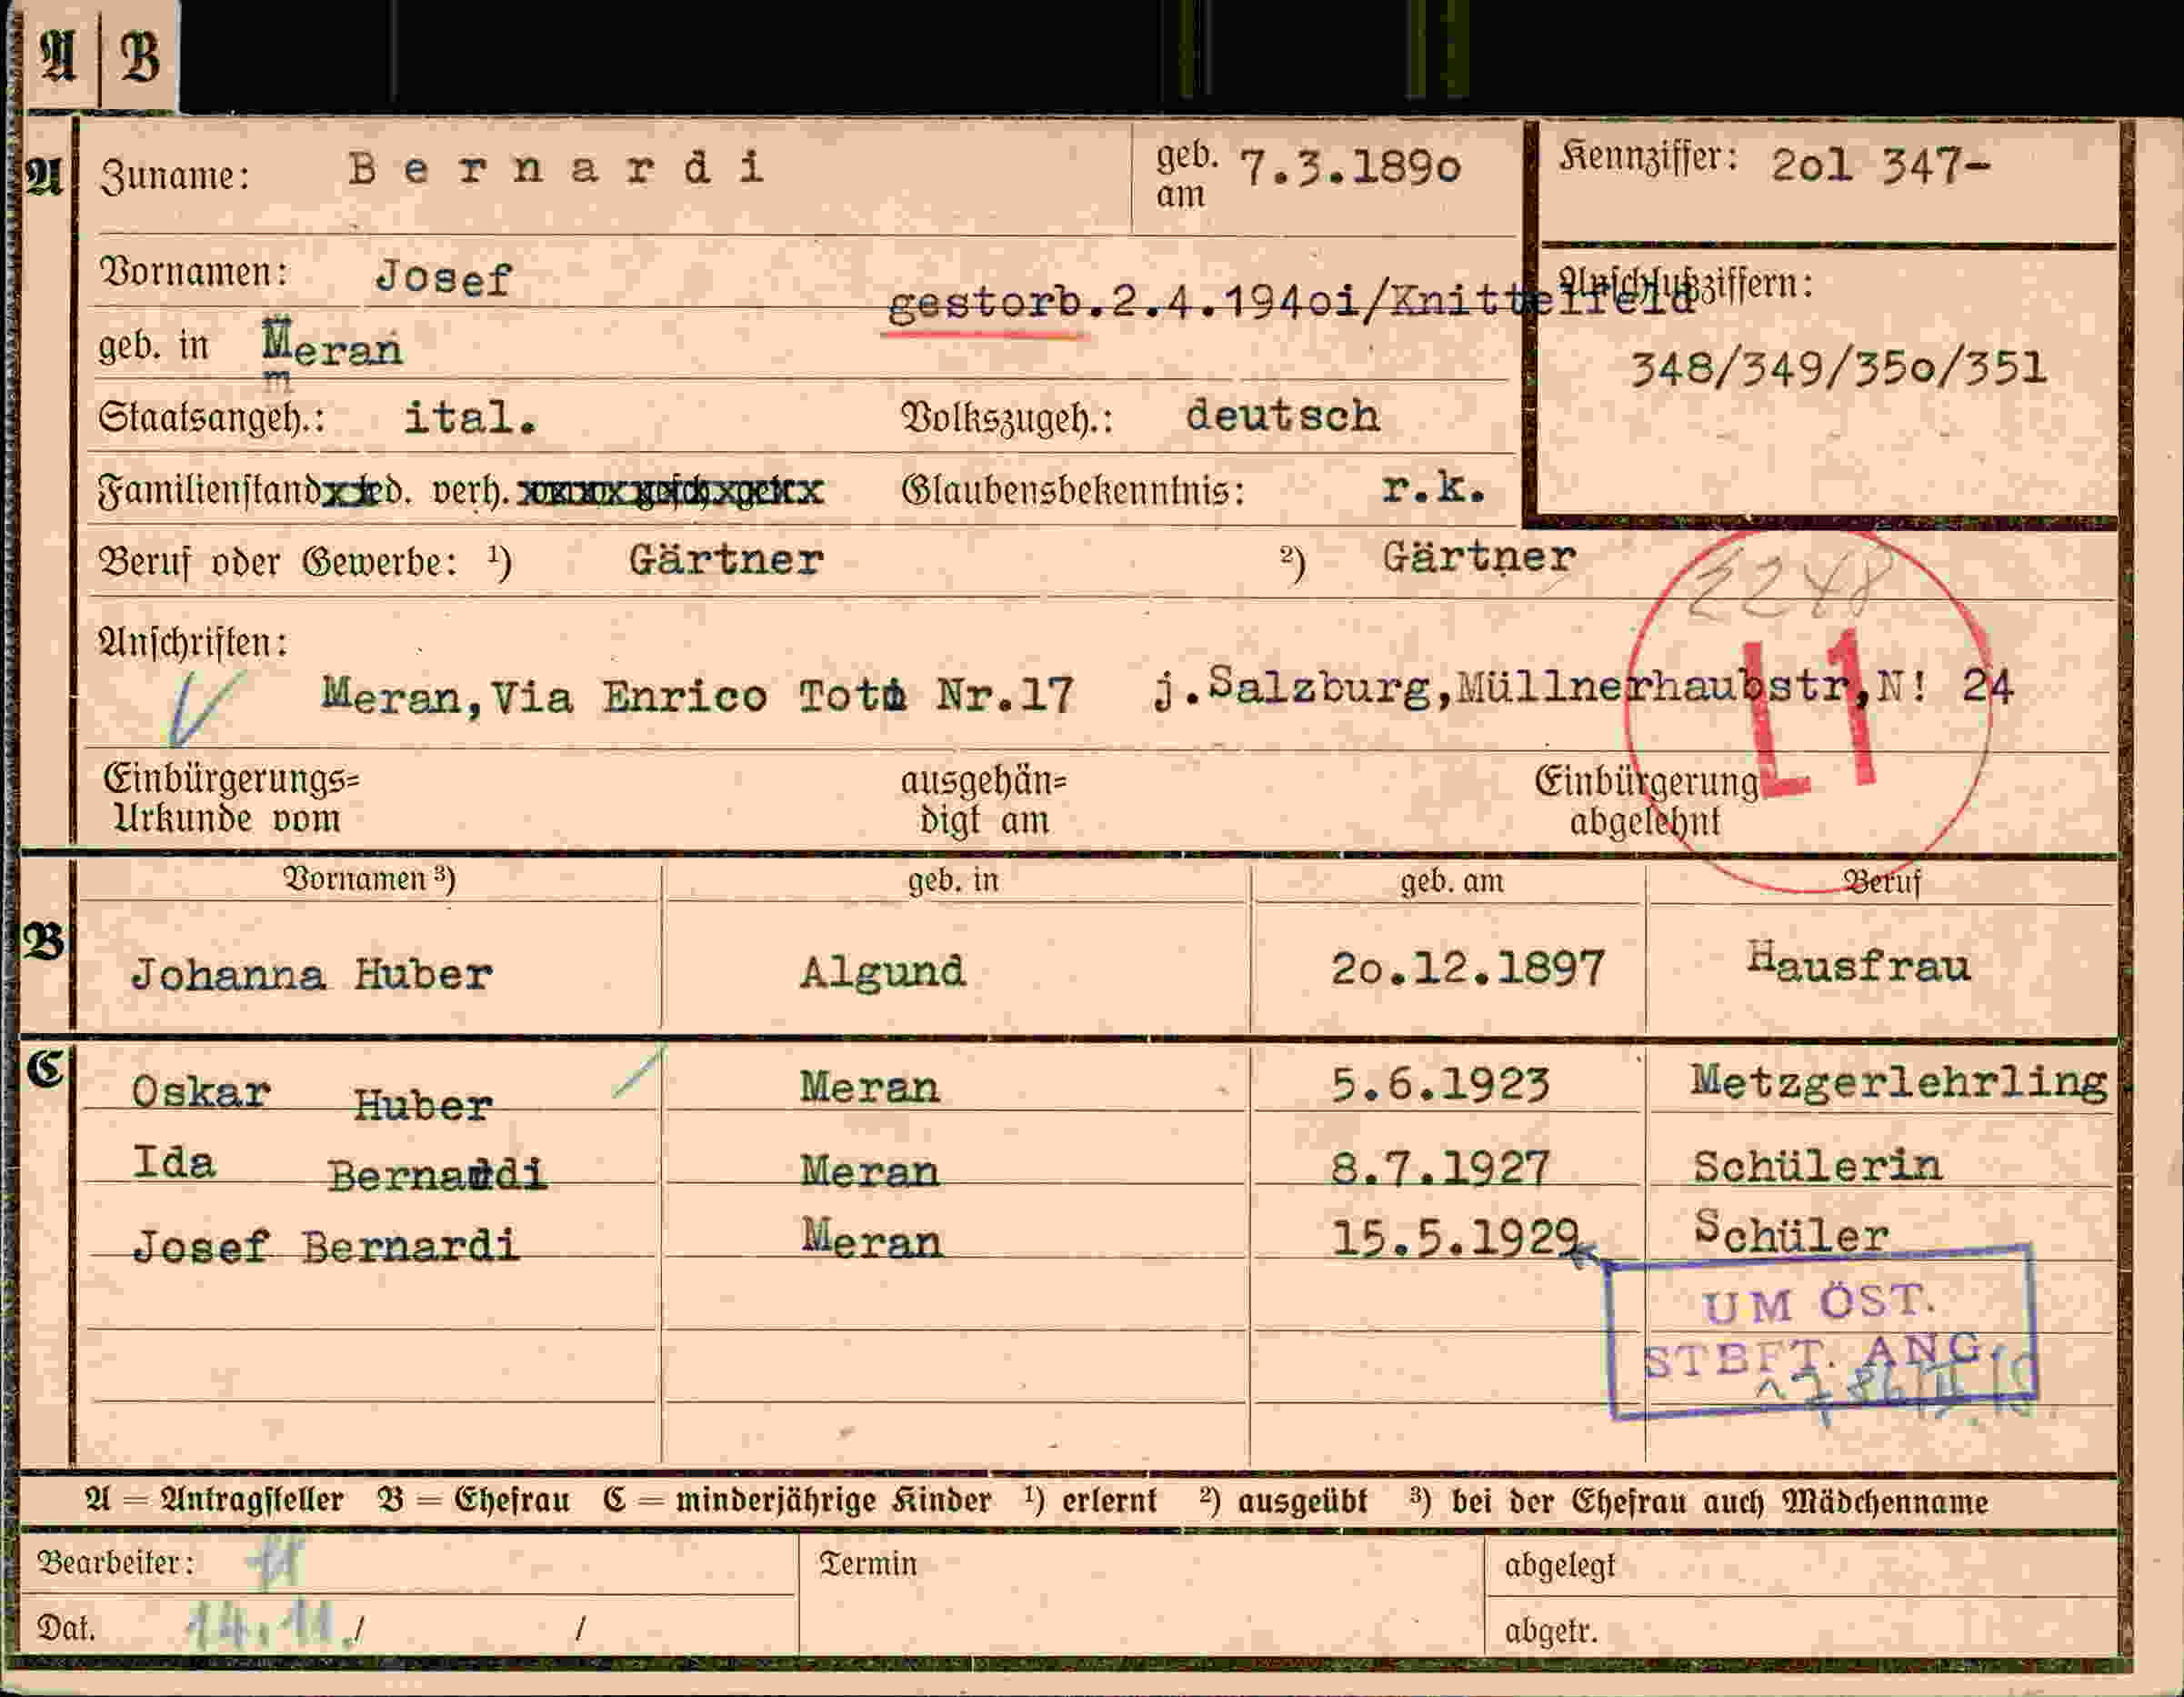 A | B
A Zuname: Bernardi geb. am 7.3.189o Kennziffer: 2ol 347-
Vornamen: Josef
gestorb.2.4.194oi/Knittelfeld Anschlußziffern:
geb. in Meran 348/349/35o/351
Staatsangeh.: ital. Volkszugeh.: deutsch
Familienstand led. verh. Glaubensbekenntnis: r.k.
Beruf oder Gewerbe: ¹) Gärtner ²) Gärtner
2248
Anschriften:
Meran,Via Enrico Toti Nr.17 j.Salzburg,Müllnerhaubstr,N! 24
L1
Einbürgerungs=
Urkunde vom
ausgehän=
digt am
Einbürgerung
abgelehnt
Vornamen ³) geb. in geb. am Beruf
B Johanna Huber Algund 2o.12.1897 Hausfrau
C Oskar Huber Meran 5.6.1923 Metzgerlehrling
Ida Bernardi Meran 8.7.1927 Schülerin
Josef Bernardi Meran 15.5.1929 Schüler
UM ÖST.
STBFT. ANG.
A = Antragsteller B = Ehefrau C = minderjährige Kinder ¹) erlernt ²) ausgeübt ³) bei der Ehefrau auch Mädchenname
Bearbeiter: Termin abgelegt
Dat. 14.11./ / abgetr.